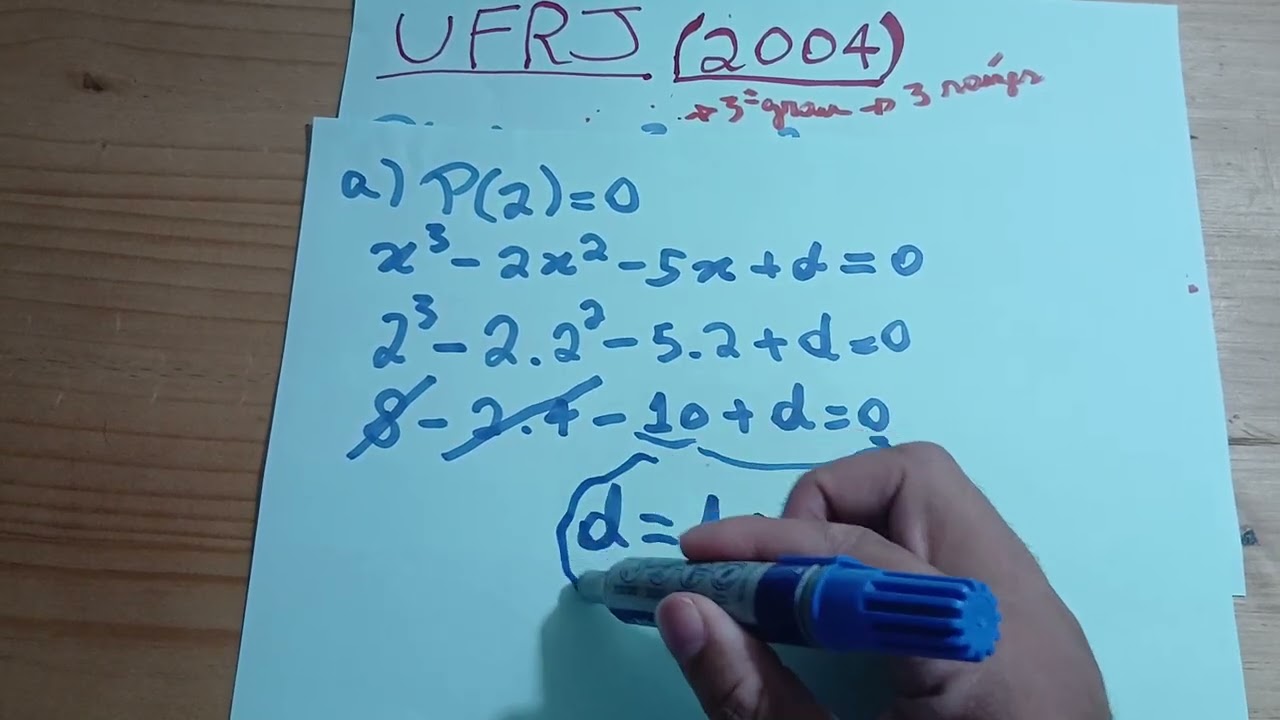 UFRJ (2004)
→ 3º grau → 3 raízes
a) P(2)=0
x³ - 2x² - 5x + d = 0
2³ - 2.2² - 5.2 + d = 0
8 - 2.4 - 10 + d = 0
d =